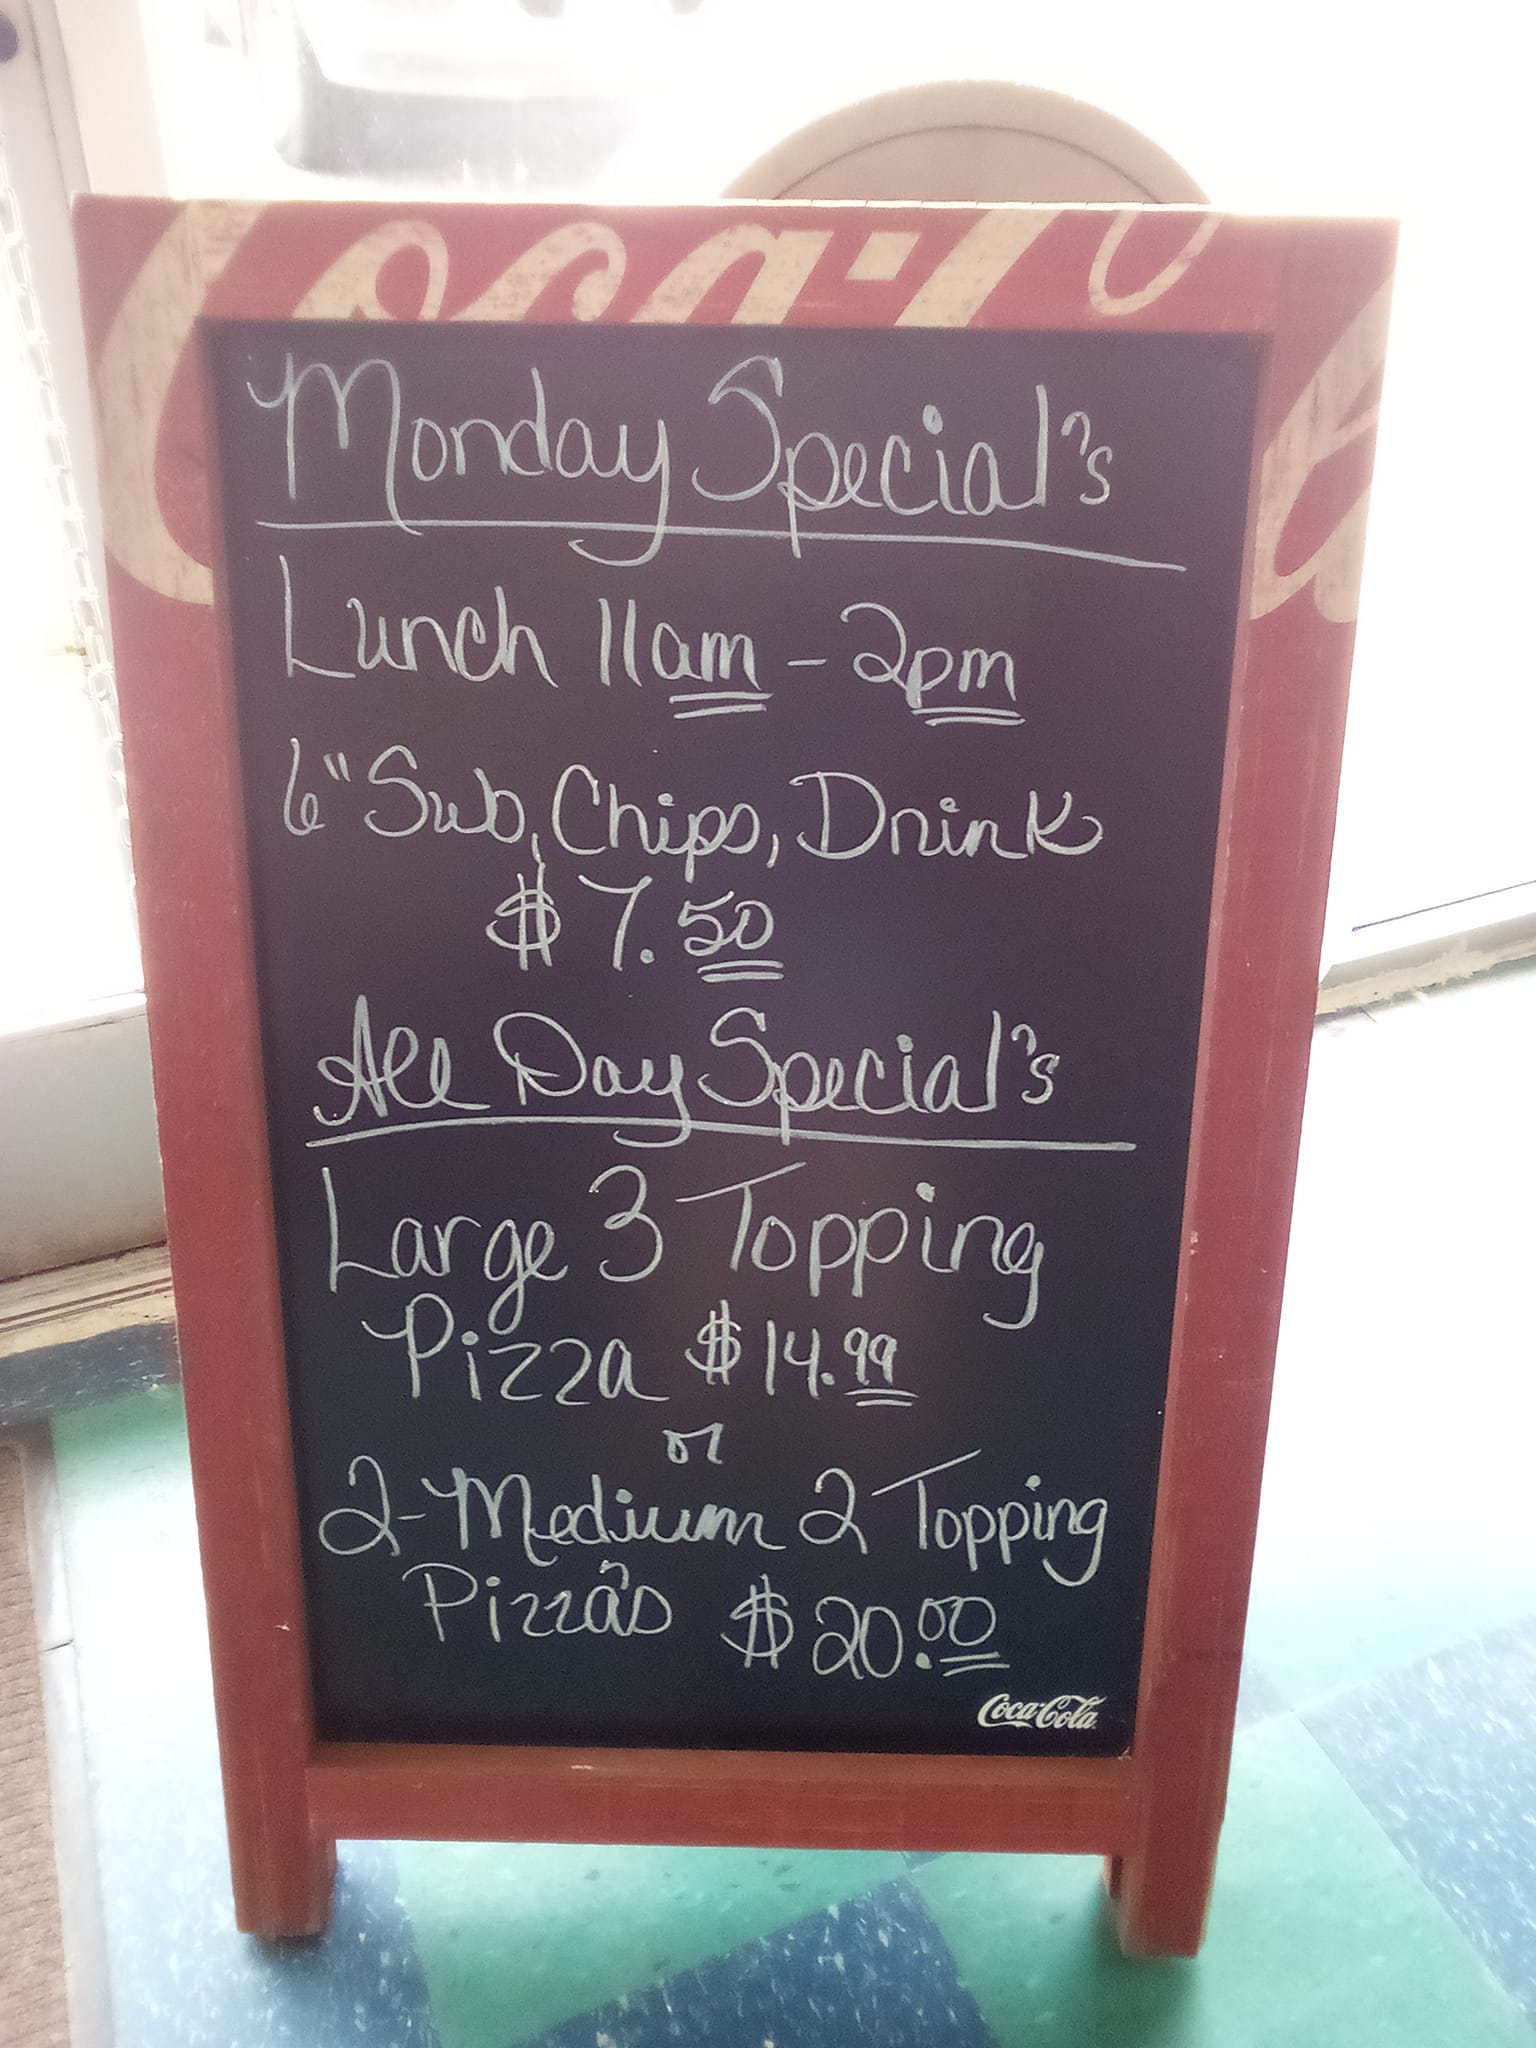 Coca-C
Monday Special's
Lunch 11am - 2pm
6" Sub, Chips, Drink
$7.50
All Day Special's
Large 3 Topping
Pizza $14.99
or
2-Medium 2 Topping
Pizza's $20.00
Coca-Cola